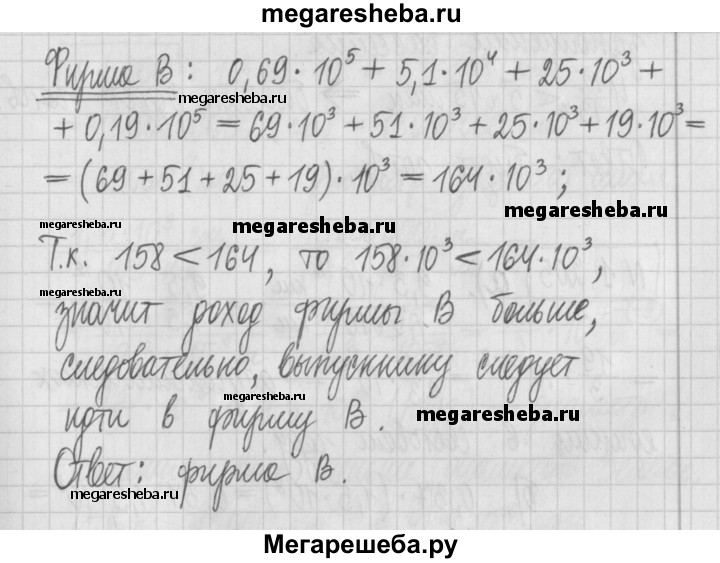 megaresheba.ru
Фирма В: 0,69·10⁵ + 5,1·10⁴ + 25·10³ +
megaresheba.ru
+ 0,19·10⁵ = 69·10³ + 51·10³ + 25·10³ + 19·10³ =
= (69 + 51 + 25 + 19)·10³ = 164·10³;
megaresheba.ru
megaresheba.ru
megaresheba.ru
Т.к. 158 < 164, то 158·10³ < 164·10³,
megaresheba.ru
значит доход фирмы В больше,
следовательно, выпускнику следует
megaresheba.ru
идти в фирму В.
megaresheba.ru
Ответ: фирма В.
megaresheba.ru
Мегарешеба.ру